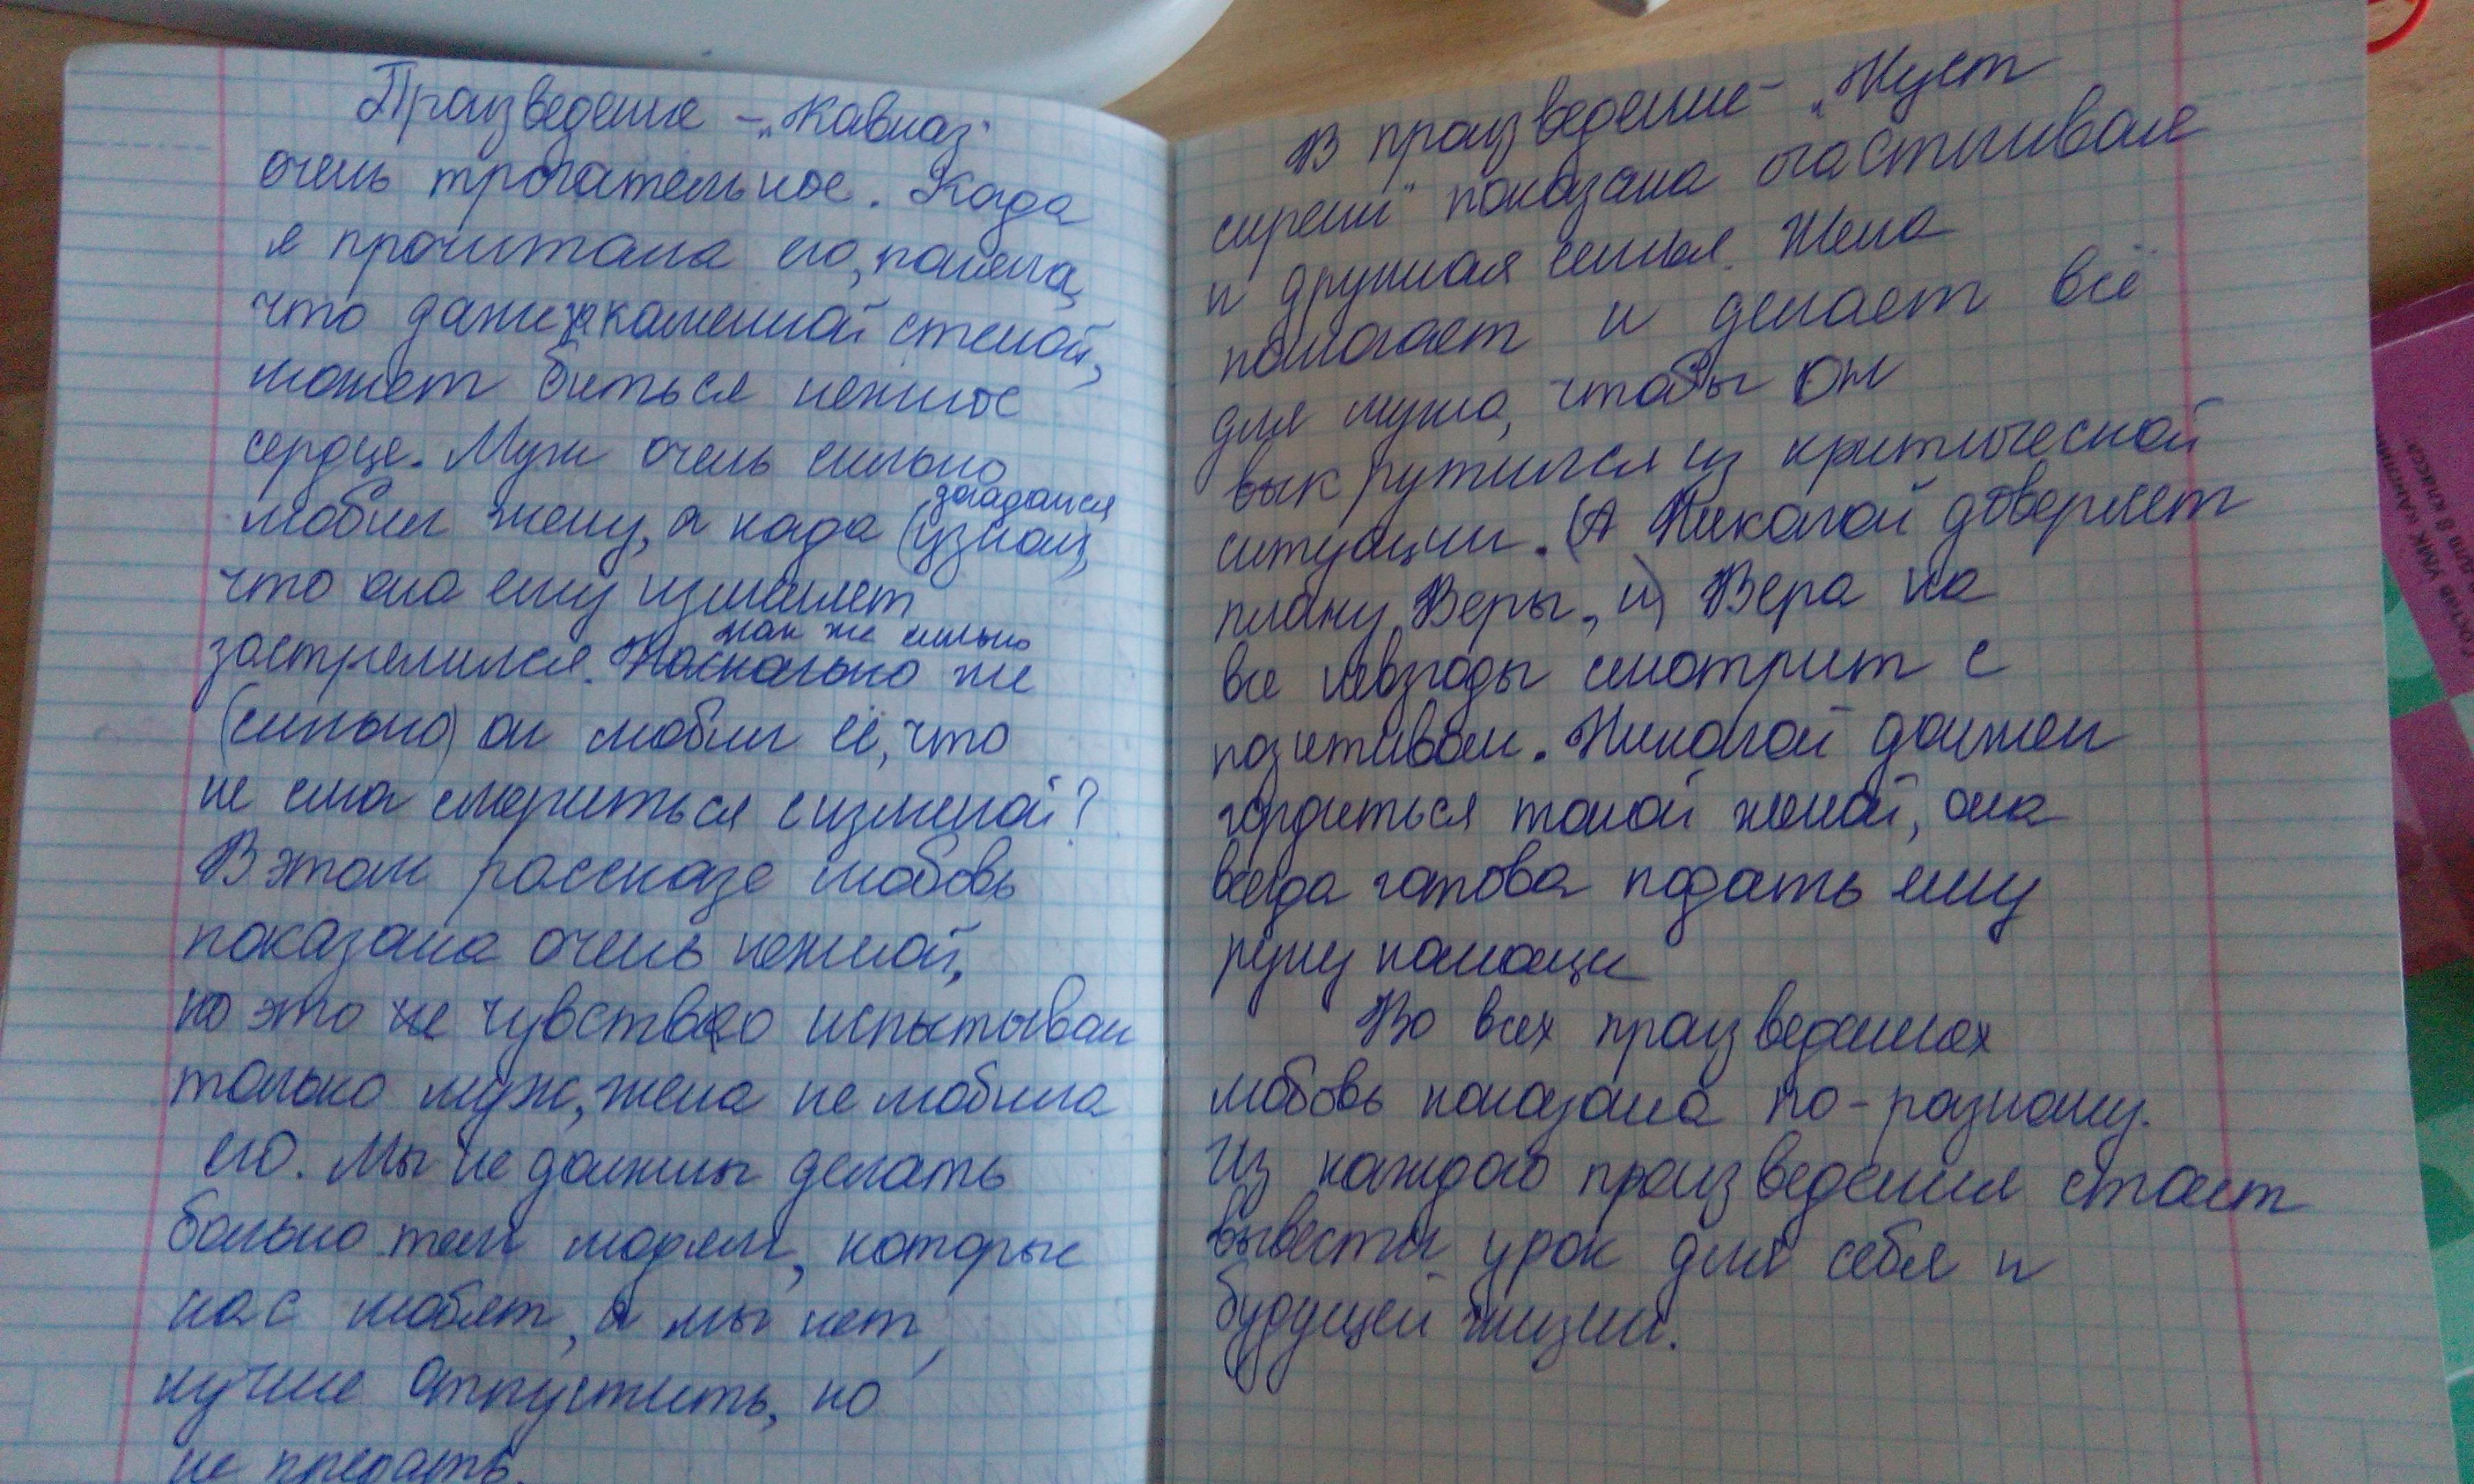 Произведение - „Кавказ"
очень трогательное. Когда
я прочитала его, поняла,
что даже каменной стеной,
может биться нежное
сердце. Муж очень сильно
любил жену, а когда (узнал)
догадался
что она ему изменяет
застрелился. Насколько же
как же сильно
(сильно) он любил её, что
не смог смириться с изменой?
В этом рассказе любовь
показана очень нежной,
но это же чувство испытывал
только муж, жена не любила
его. Мы не должны делать
больно тем людям, которые
нас любят, а мы нет,
лучше отпустить, но
не предать.
В произведение - „Куст
сирени" показана счастливая
и дружная семья. Жена
помогает и делает всё
для мужа, чтобы он
выкрутился из критической
ситуации. (А Николай доверяет
плану Веры, и) Вера на
все невзгоды смотрит с
позитивом. Николай должен
гордиться такой женой, она
всегда готова подать ему
руку помощи
Во всех произведениях
любовь показана по-разному.
Из каждого произведения стоит
вывести урок для себя и
будущей жизни.
УМК
для 8 класса